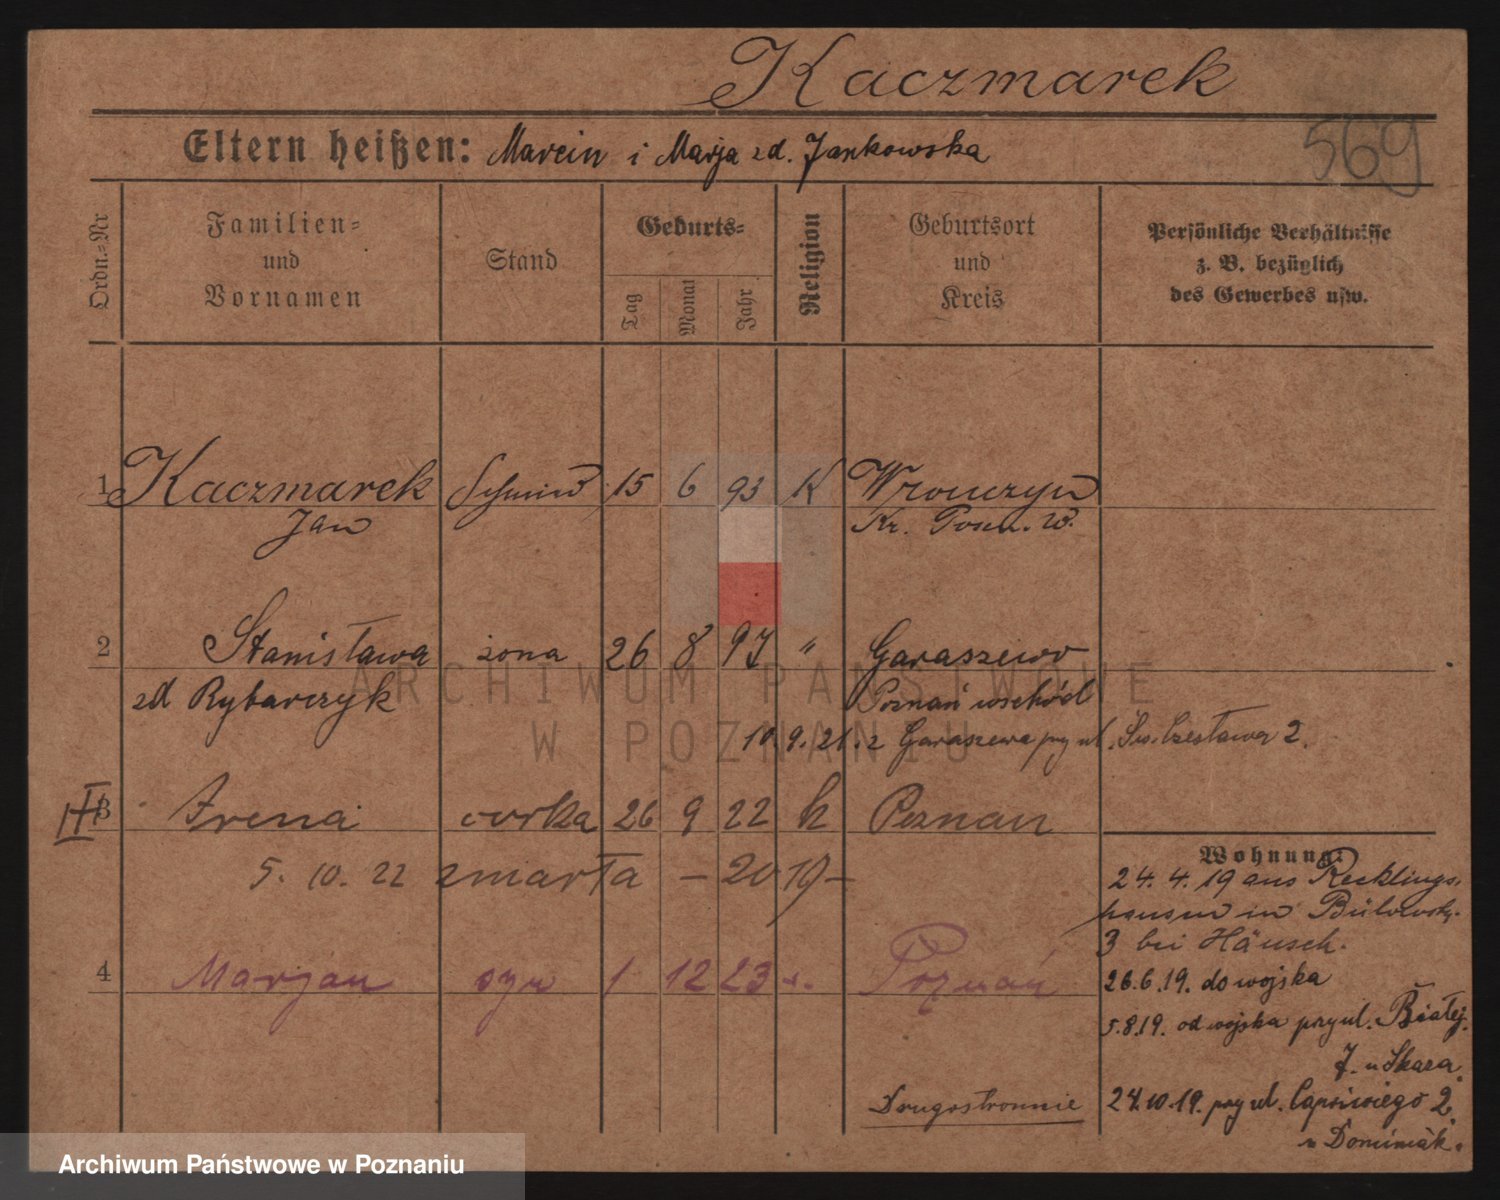 Kaczmarek
569
Eltern heißen: Marcin i Marja zd. Jankowska
Ordn.=Nr
Familien=
und
Vornamen
Stand
Geburts=
Tag
Monat
Jahr
Religion
Geburtsort
und
Kreis
Persönliche Verhältnisse
z. B. bezüglich
des Gewerbes usw.
1 Kaczmarek Schmied 15 6 93 K Wronczyn
Jan Kr. Posen. W.
2 Stanisława żona 26 8 97 " Garaszewo
zd Rybarczyk Poznań wschód
10.9.21. z Garaszewa przy ul. Św. Czesława 2.
III 3 Irena córka 26 9 22 k Poznan
5. 10. 22 zmarła – 20 19 –
4 Marjan syn 1 12 23 Poznań
Wohnung:
24. 4. 19 aus Recklings-
hausen in Bülowstr.
3 bei Häusch.
26.6.19. do wojska
5.8.19. od wojska przy ul. Białej
7. u Skara.
Drugostronnie
24.10.19. przy ul. 2.
u Dominiak.
ARCHIWUM PAŃSTWOWE
W POZNANIU
Archiwum Państwowe w Poznaniu